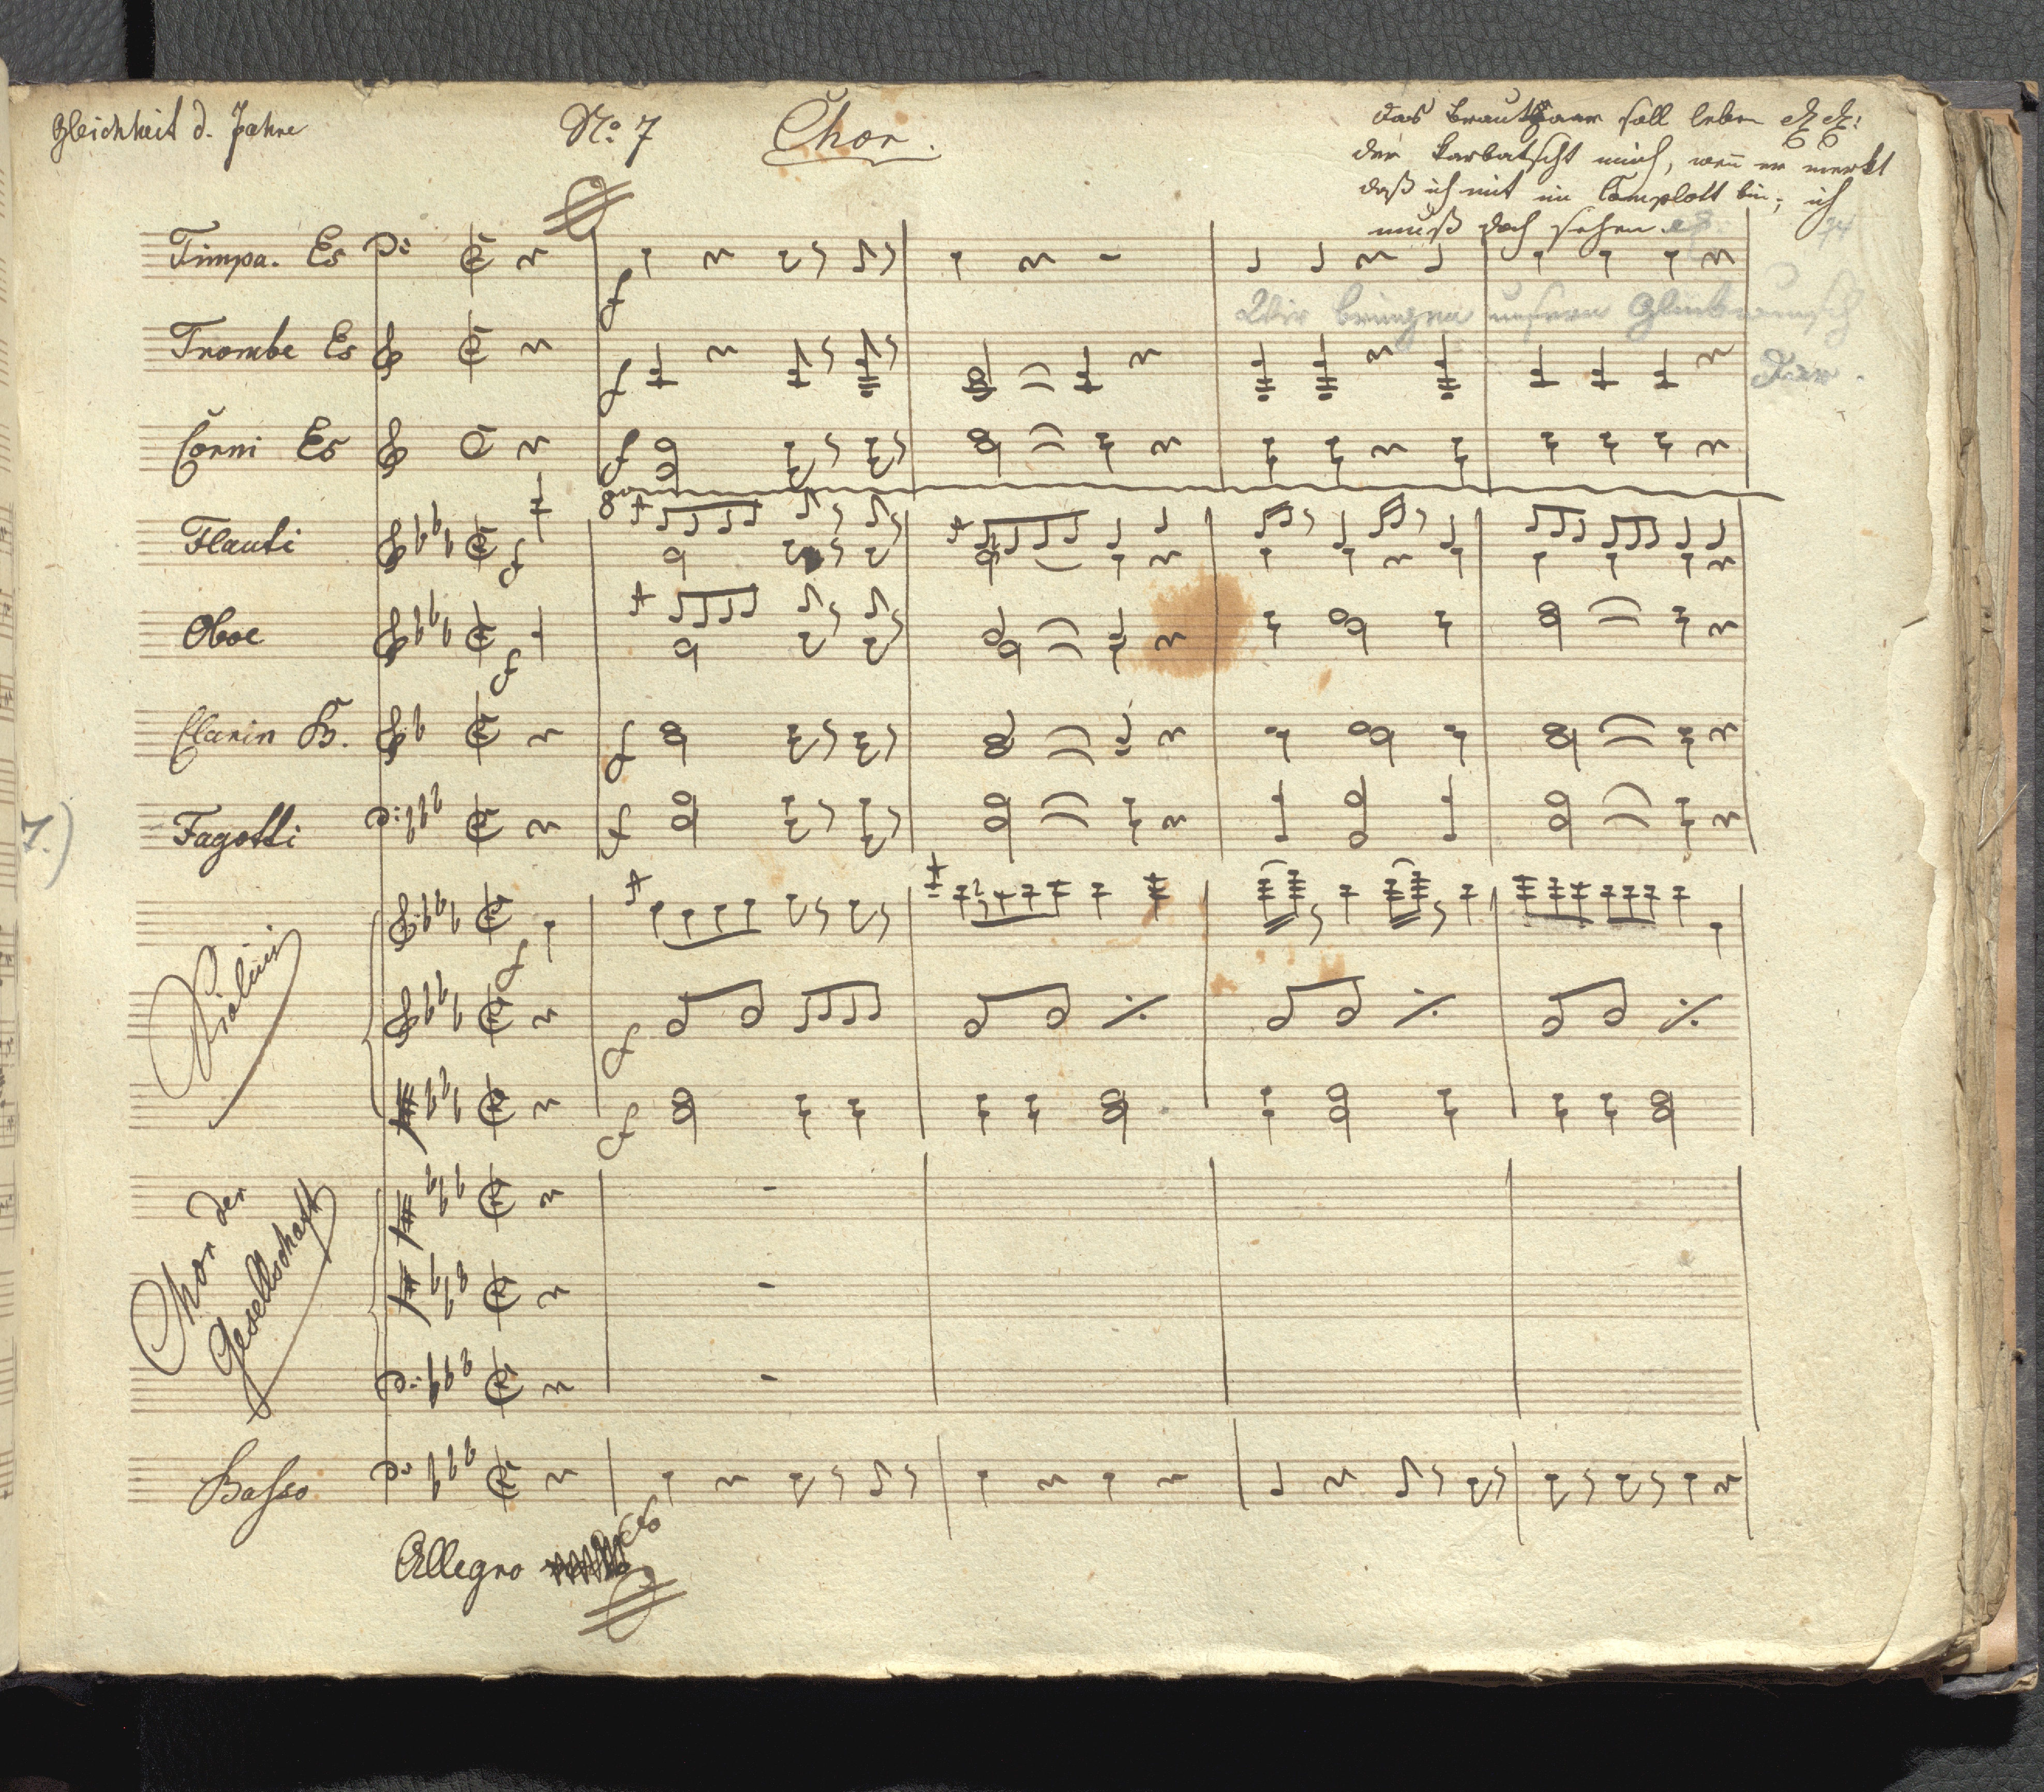 Gleichheit d. Jahre
No. 7
Chor.
das Brautpaar soll leben
der karbatscht mich, wenn er merkt
daß ich mit im Complott bin; ich
muß doch sehen
74
Timpa. Es
f
Wir bringen unsern Glückwunsch
Dar.
Trombe Es
f
Corni Es
f
8
Flauti
f
Oboe
f
Clarin B.
f
Fagotti
f
7.)
Violini
f
f
f
Chor der
Gesellschaft
Basso
Allegro